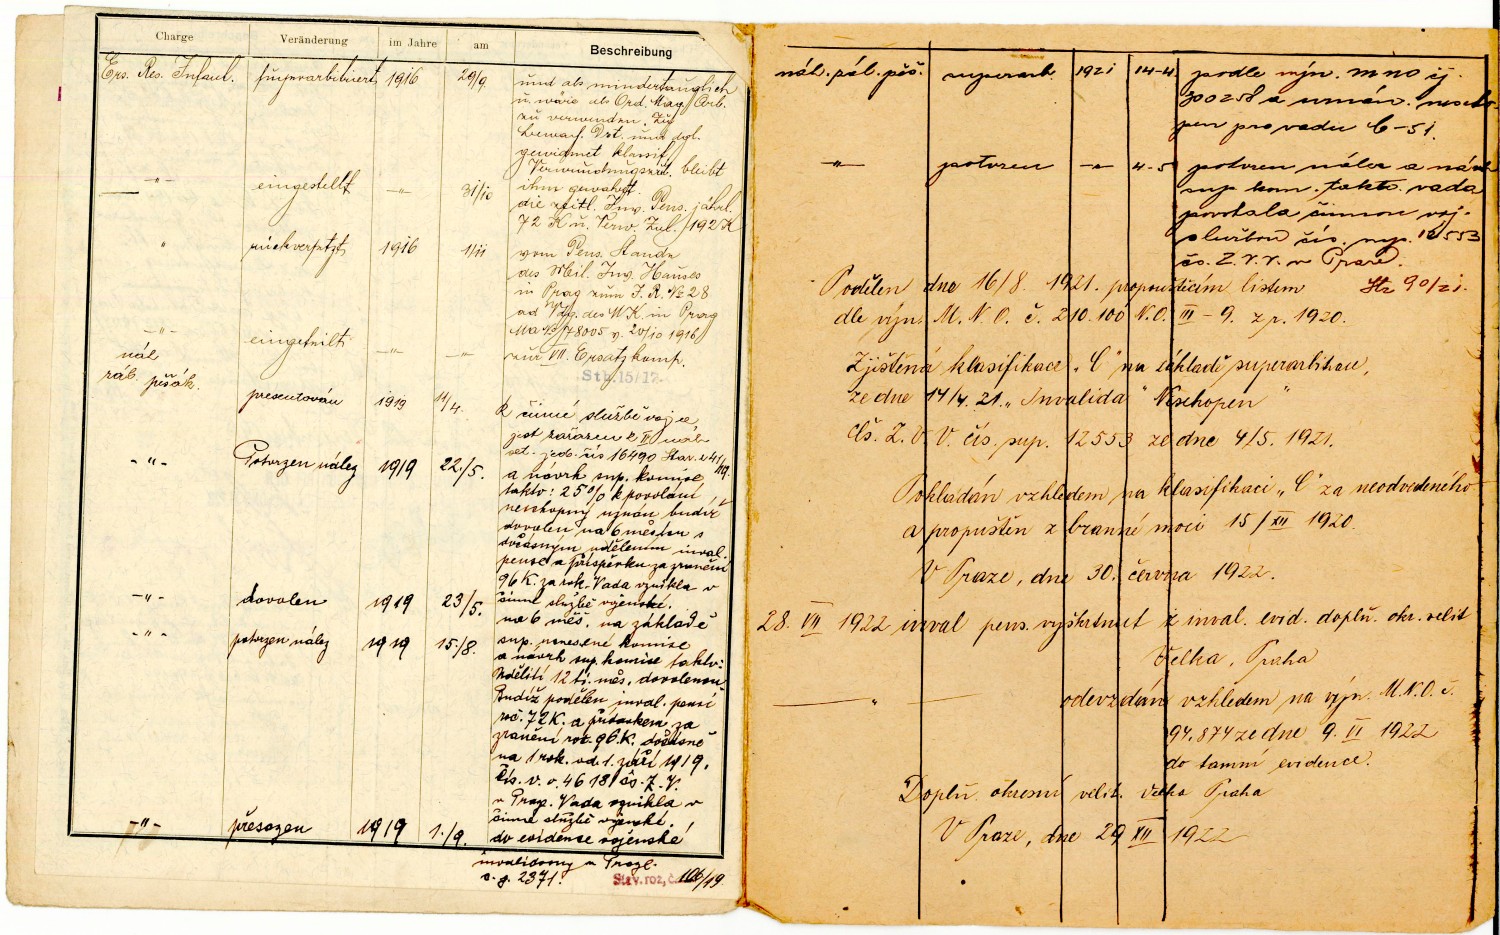 Charge Veränderung im Jahre am Beschreibung
Ers. Res. Infant. superarbitriert 1916 29/9. und als mindertauglich
u. wäre als Ord. Mag. Arb.
zu verwenden. Zu
Bewach. Dst. und dgl.
gewidmet klassif.
Verwundungszul. bleibt
ihm gewahrt.
-"- eingestellt -"- 31/10 die zeitl. Inv. Pens. jährl.
72 K u. Verw. Zul. 192 K
" rückversetzt 1916 1/11 vom Pens. Stande
des Mil. Inv. Hauses
in Prag zum I. R. № 28
ad Vdg. des MK. in Prag
MA № 78005 v. 20/10 1916
-"- eingeteilt -"- -"- zur VII. Ersatzkomp.
Stb. 15/17.
nál.
záb. pěšák. presentován 1919 11/4. K činné službě voj. je
jest zařazen k II náh.
set. jedn. čís 16490 Stav. z 41/19.
-"- Potvrzen nález 1919 22./5. a návrh sup. komise
takto: 25% k povolání
neschopný uznán budiž
dovolen na 6 měsíců s
dočasným udělením inval.
pense a příspěvku za zranění
96 K. za rok. Vada vznikla v
činné službě vojenské.
-"- dovolen 1919 23/5. na 6 měs. na základě
sup. nenesené komise
-"- potvrzen nález 1919 15./8. a návrh sup. komise takto:
Uděliti 12 ti. měs. dovolenou
Budiž podělen inval. pensí
roč. 72 K. a přídavkem za
zranění roč. 96 K. dočasně
na 1 rok. od. 1. září 1919.
čís. v. o. 46 181 čs. Z. V.
v Praze. Vada vznikla v
činné službě vojenské.
-"- přeřazen 1919 1./9. do evidence vojenské
invalidovny v Praze.
č. j. 2371. Stav. roz. č. 106/19
náh. pěš. superarb. 1921 14-4. podle výn. MNO čj.
300258 a uznán. neschopen
pro vadu C-51.
-"- potvrzen -"- 4-5 potvrzen nález a návrh
sup kom. takto. vada
povstala činnou voj.
službou čís. sup. 12553
čs. Z. V. V. v Praze.
Podělen dne 16/8. 1921. propouštěcím listem Str 90/21.
dle výn. M. N. O. č. 210.100 N.O. III - 9. z r. 1920.
Zjištěná klasifikace „C" na základě superarbitrace,
ze dne 14/4. 21. „Invalida" „Neschopen"
čs. Z. V. V. čís. sup. 12553 ze dne 4/5. 1921.
Pokládán vzhledem na klasifikaci „C" za neodvedeného
a propuštěn z branné moci 15/XII 1920.
V Praze, dne 30. června 1922.
28. VII 1922 inval pens. vyškrtnut z inval. evid. doplň. okr. velit
Velká, Praha
-"- odevzdán vzhledem na výn. M. N. O. č.
94.874 ze dne 9. VI 1922
do tamní evidence.
Doplň. okresní velit. Velká Praha
V Praze, dne 29 XII 1922